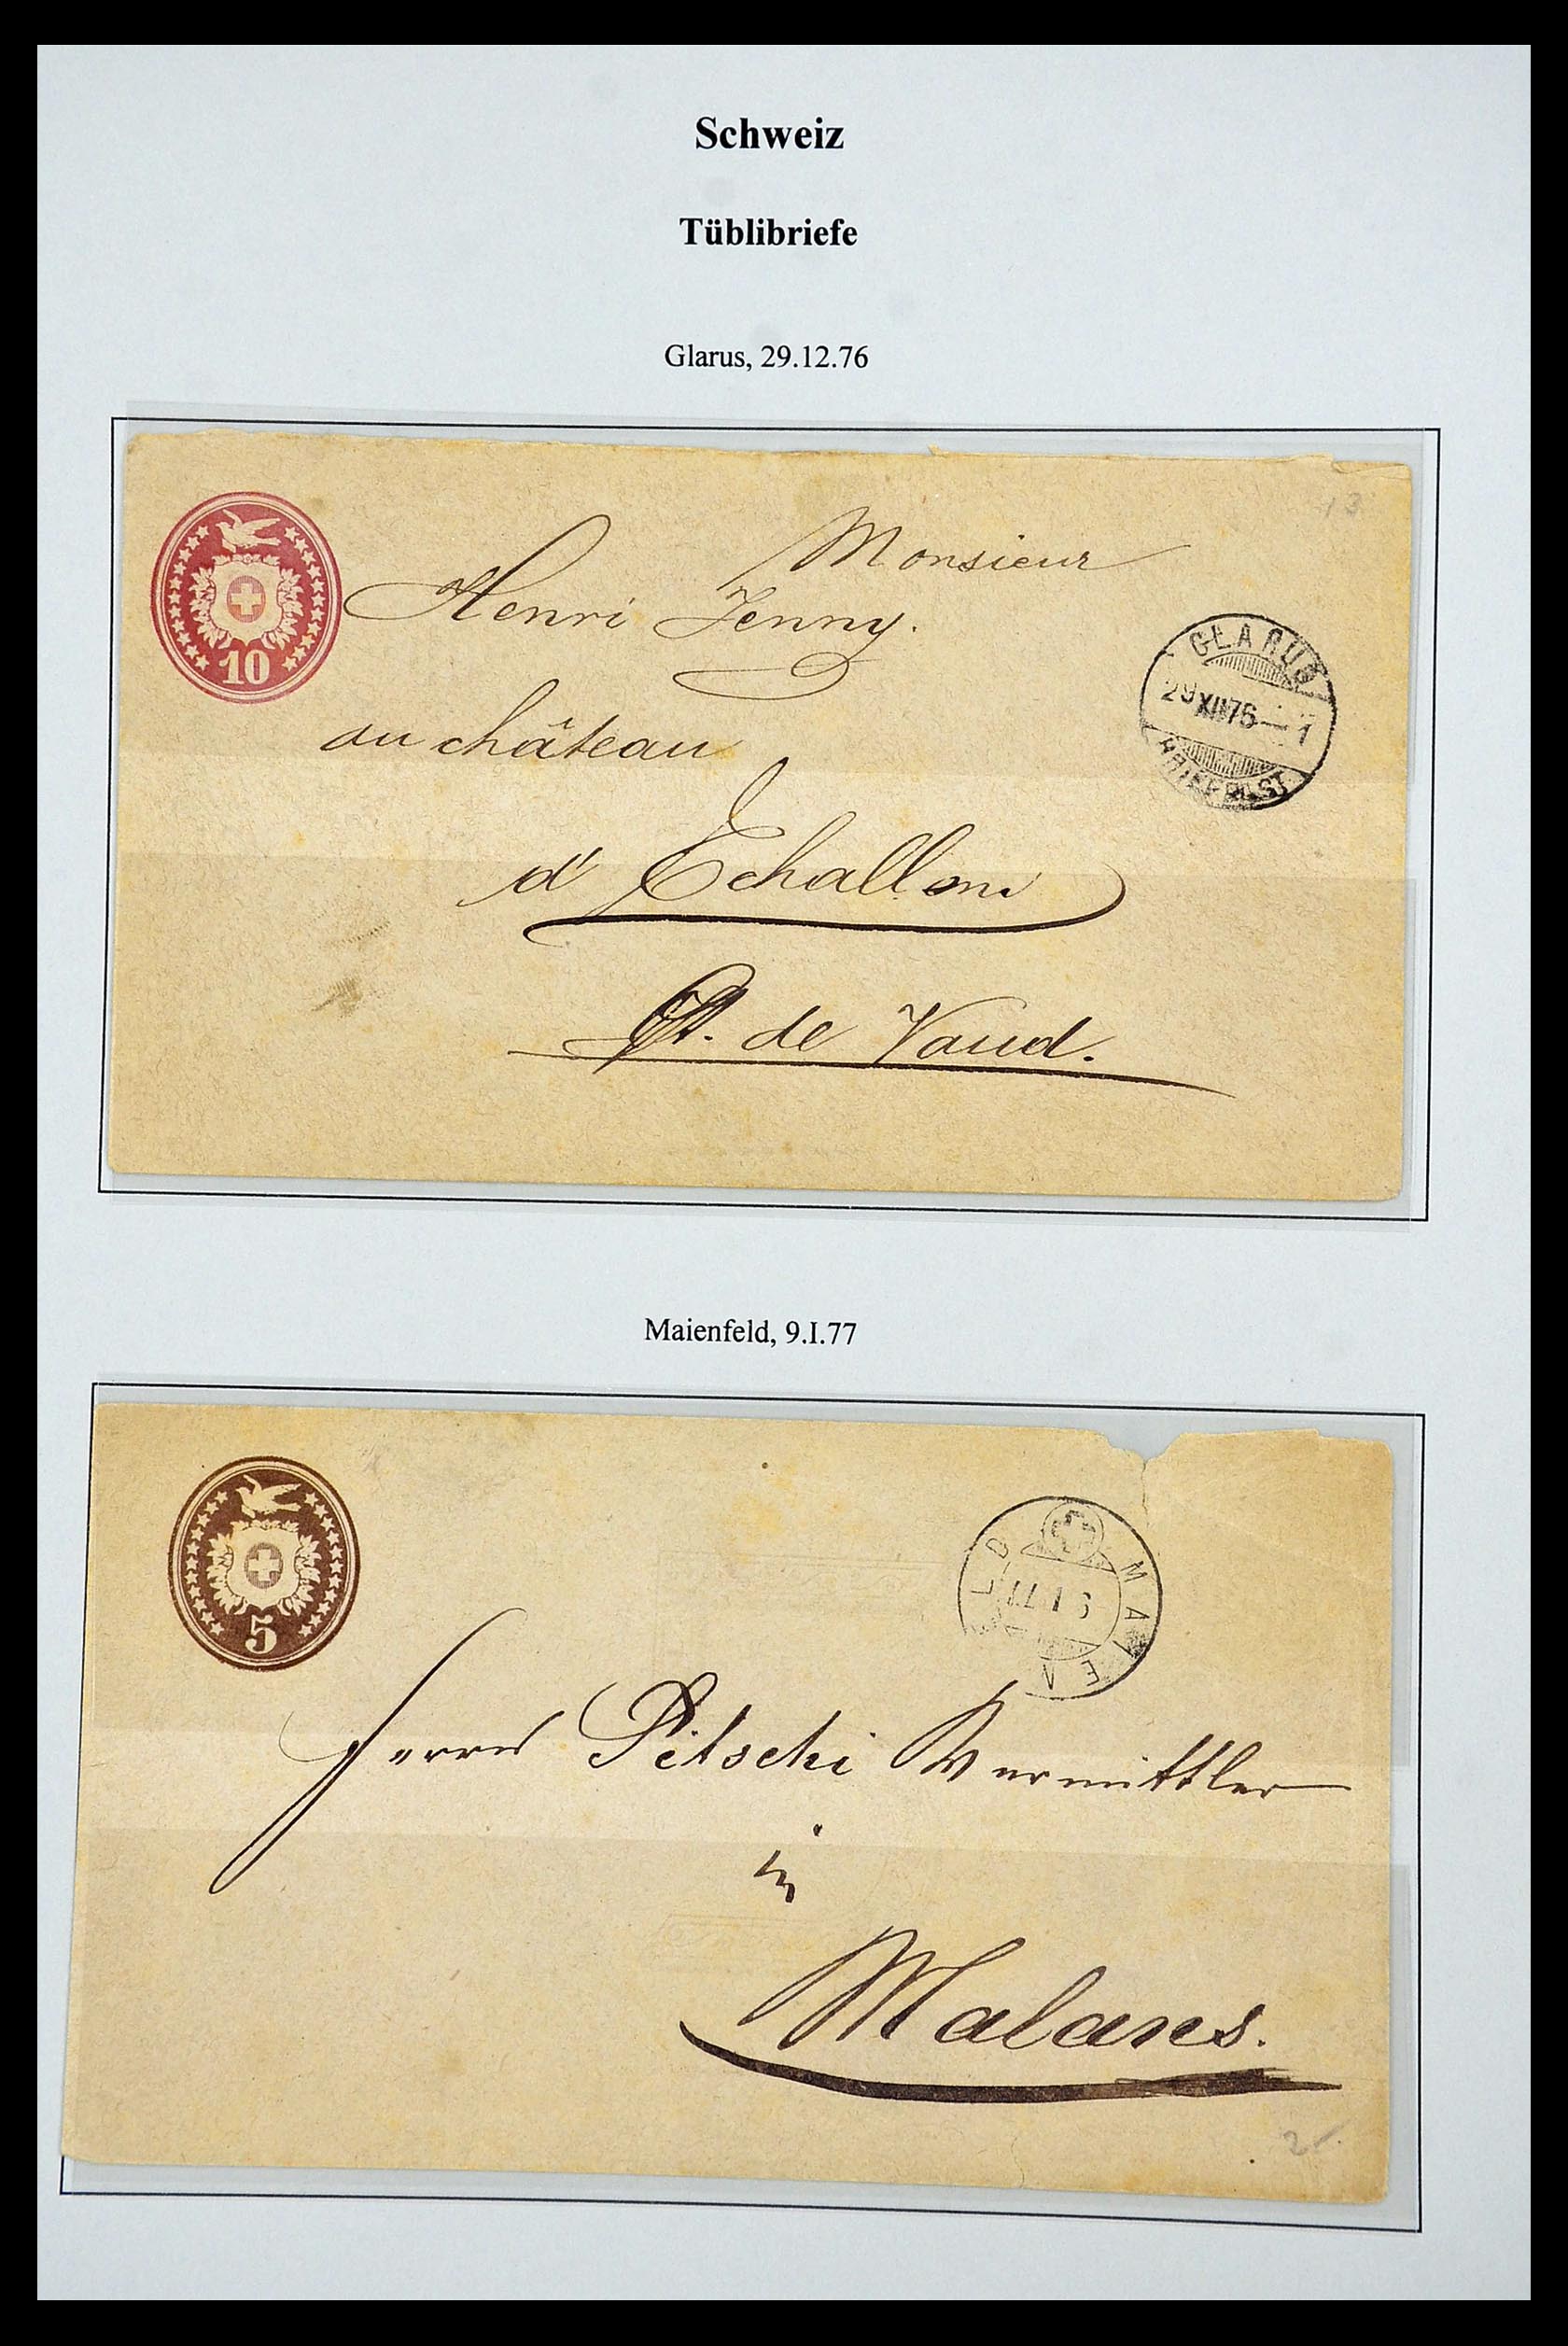 Schweiz
Tüblibriefe
Glarus, 29.12.76
13
10
Monsieur
Henri Jenny.
au château
d'Echallens
Ct. de Vaud.
GLARUS
29 XII 76 — 1
BRIEFPOST.
Maienfeld, 9.I.77
5
MAIENFELD
9 I 77
Herrn Pitschi Vermittler
in
Malans.
2.-